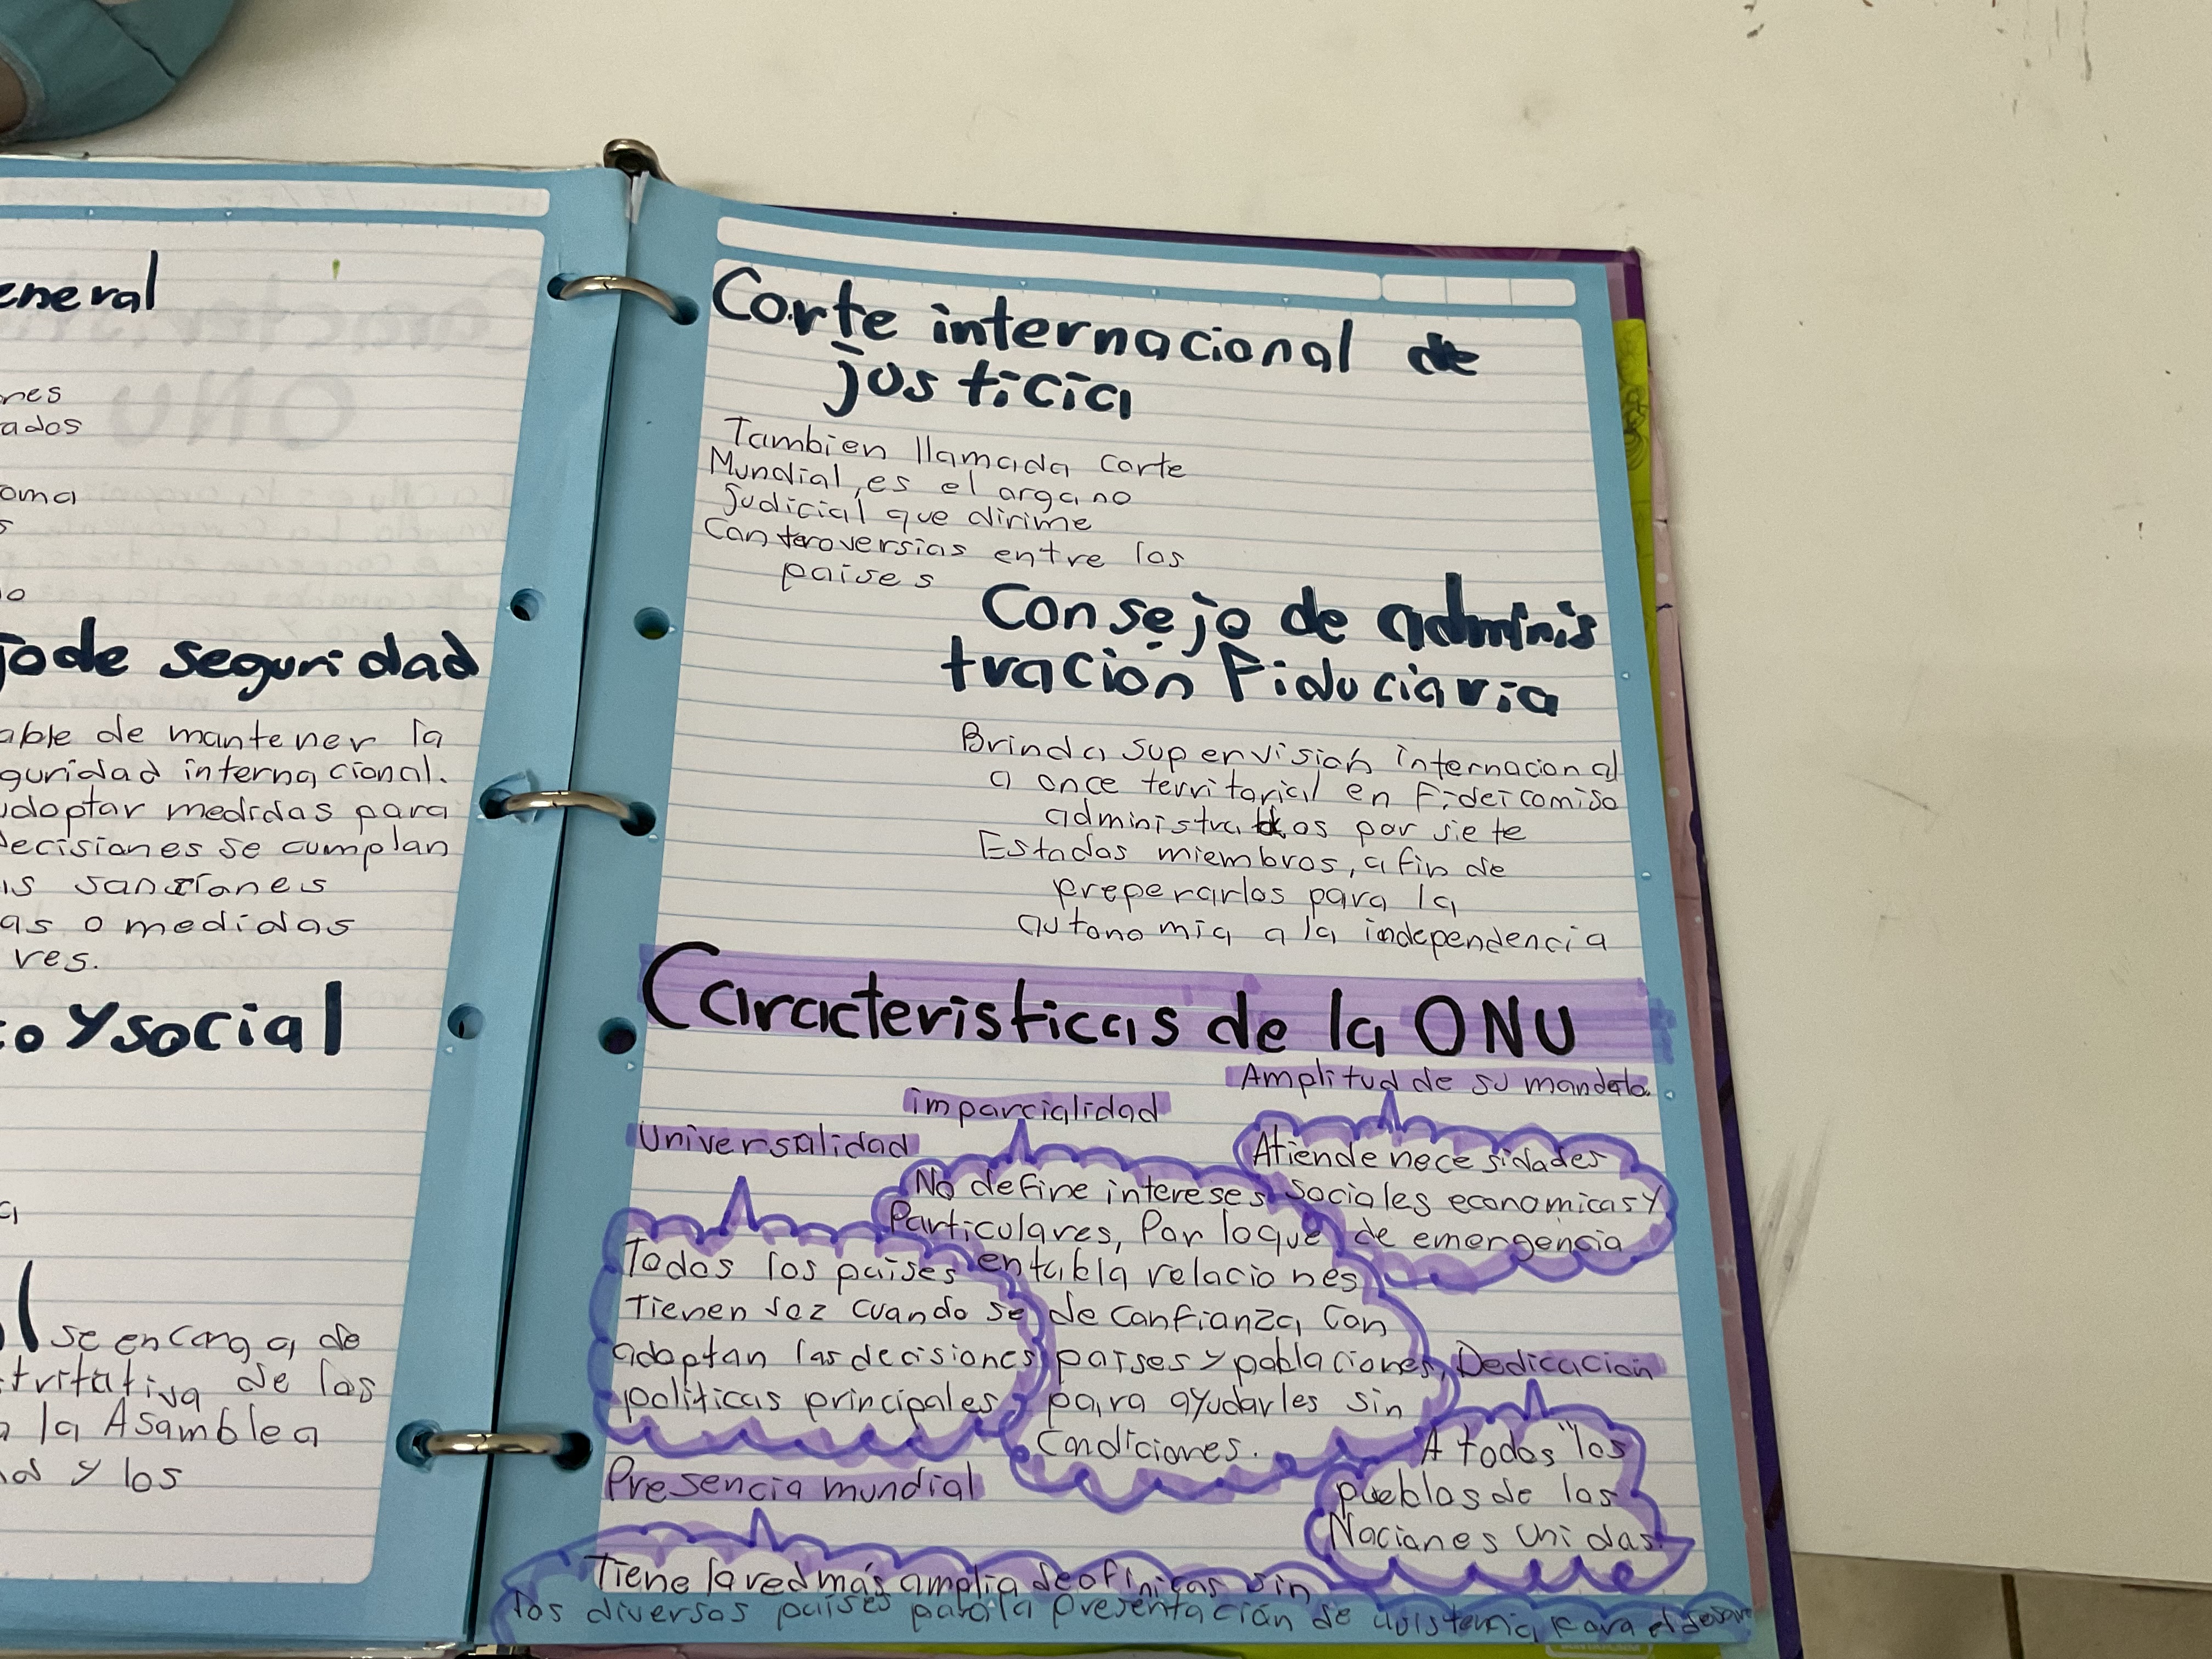 eneral
nes
ados
oma
s
o
jo de seguridad
able de mantener la
guridad internacional.
adoptar medidas para
decisiones se cumplan
as sanciones
as o medidas
res.
co y social
a
l se encarga de
de las
a la Asamblea
ad y los
Corte internacional de
justicia
Tambien llamada corte
Mundial, es el argano
judicial que dirime
Controversias entre los
paises
Consejo de adminis
tración Fiduciaria
Brinda supervisión internacional
a once territorial en Fideicomiso
administrados por siete
Estados miembros, a fin de
preperarlos para la
autonomia a la independencia
Caracteristicas de la ONU
Amplitud de su mandato.
imparcialidad
Universalidad
Atiende necesidades
sociales economicas y
de emergencia
No define intereses
Particulares, Por lo que
entabla relaciones
de confianza con
paises y poblaciones,
para ayudarles sin
Condiciones.
Todos los paises
Tienen voz cuando se
adoptan las decisiones
politicas principales
Dedicacion
A todos los
pueblos de las
Naciones Unidas.
Presencia mundial
Tiene la red más amplia de ofinicas sin
los diversos paises para la presentación de asistencia para el